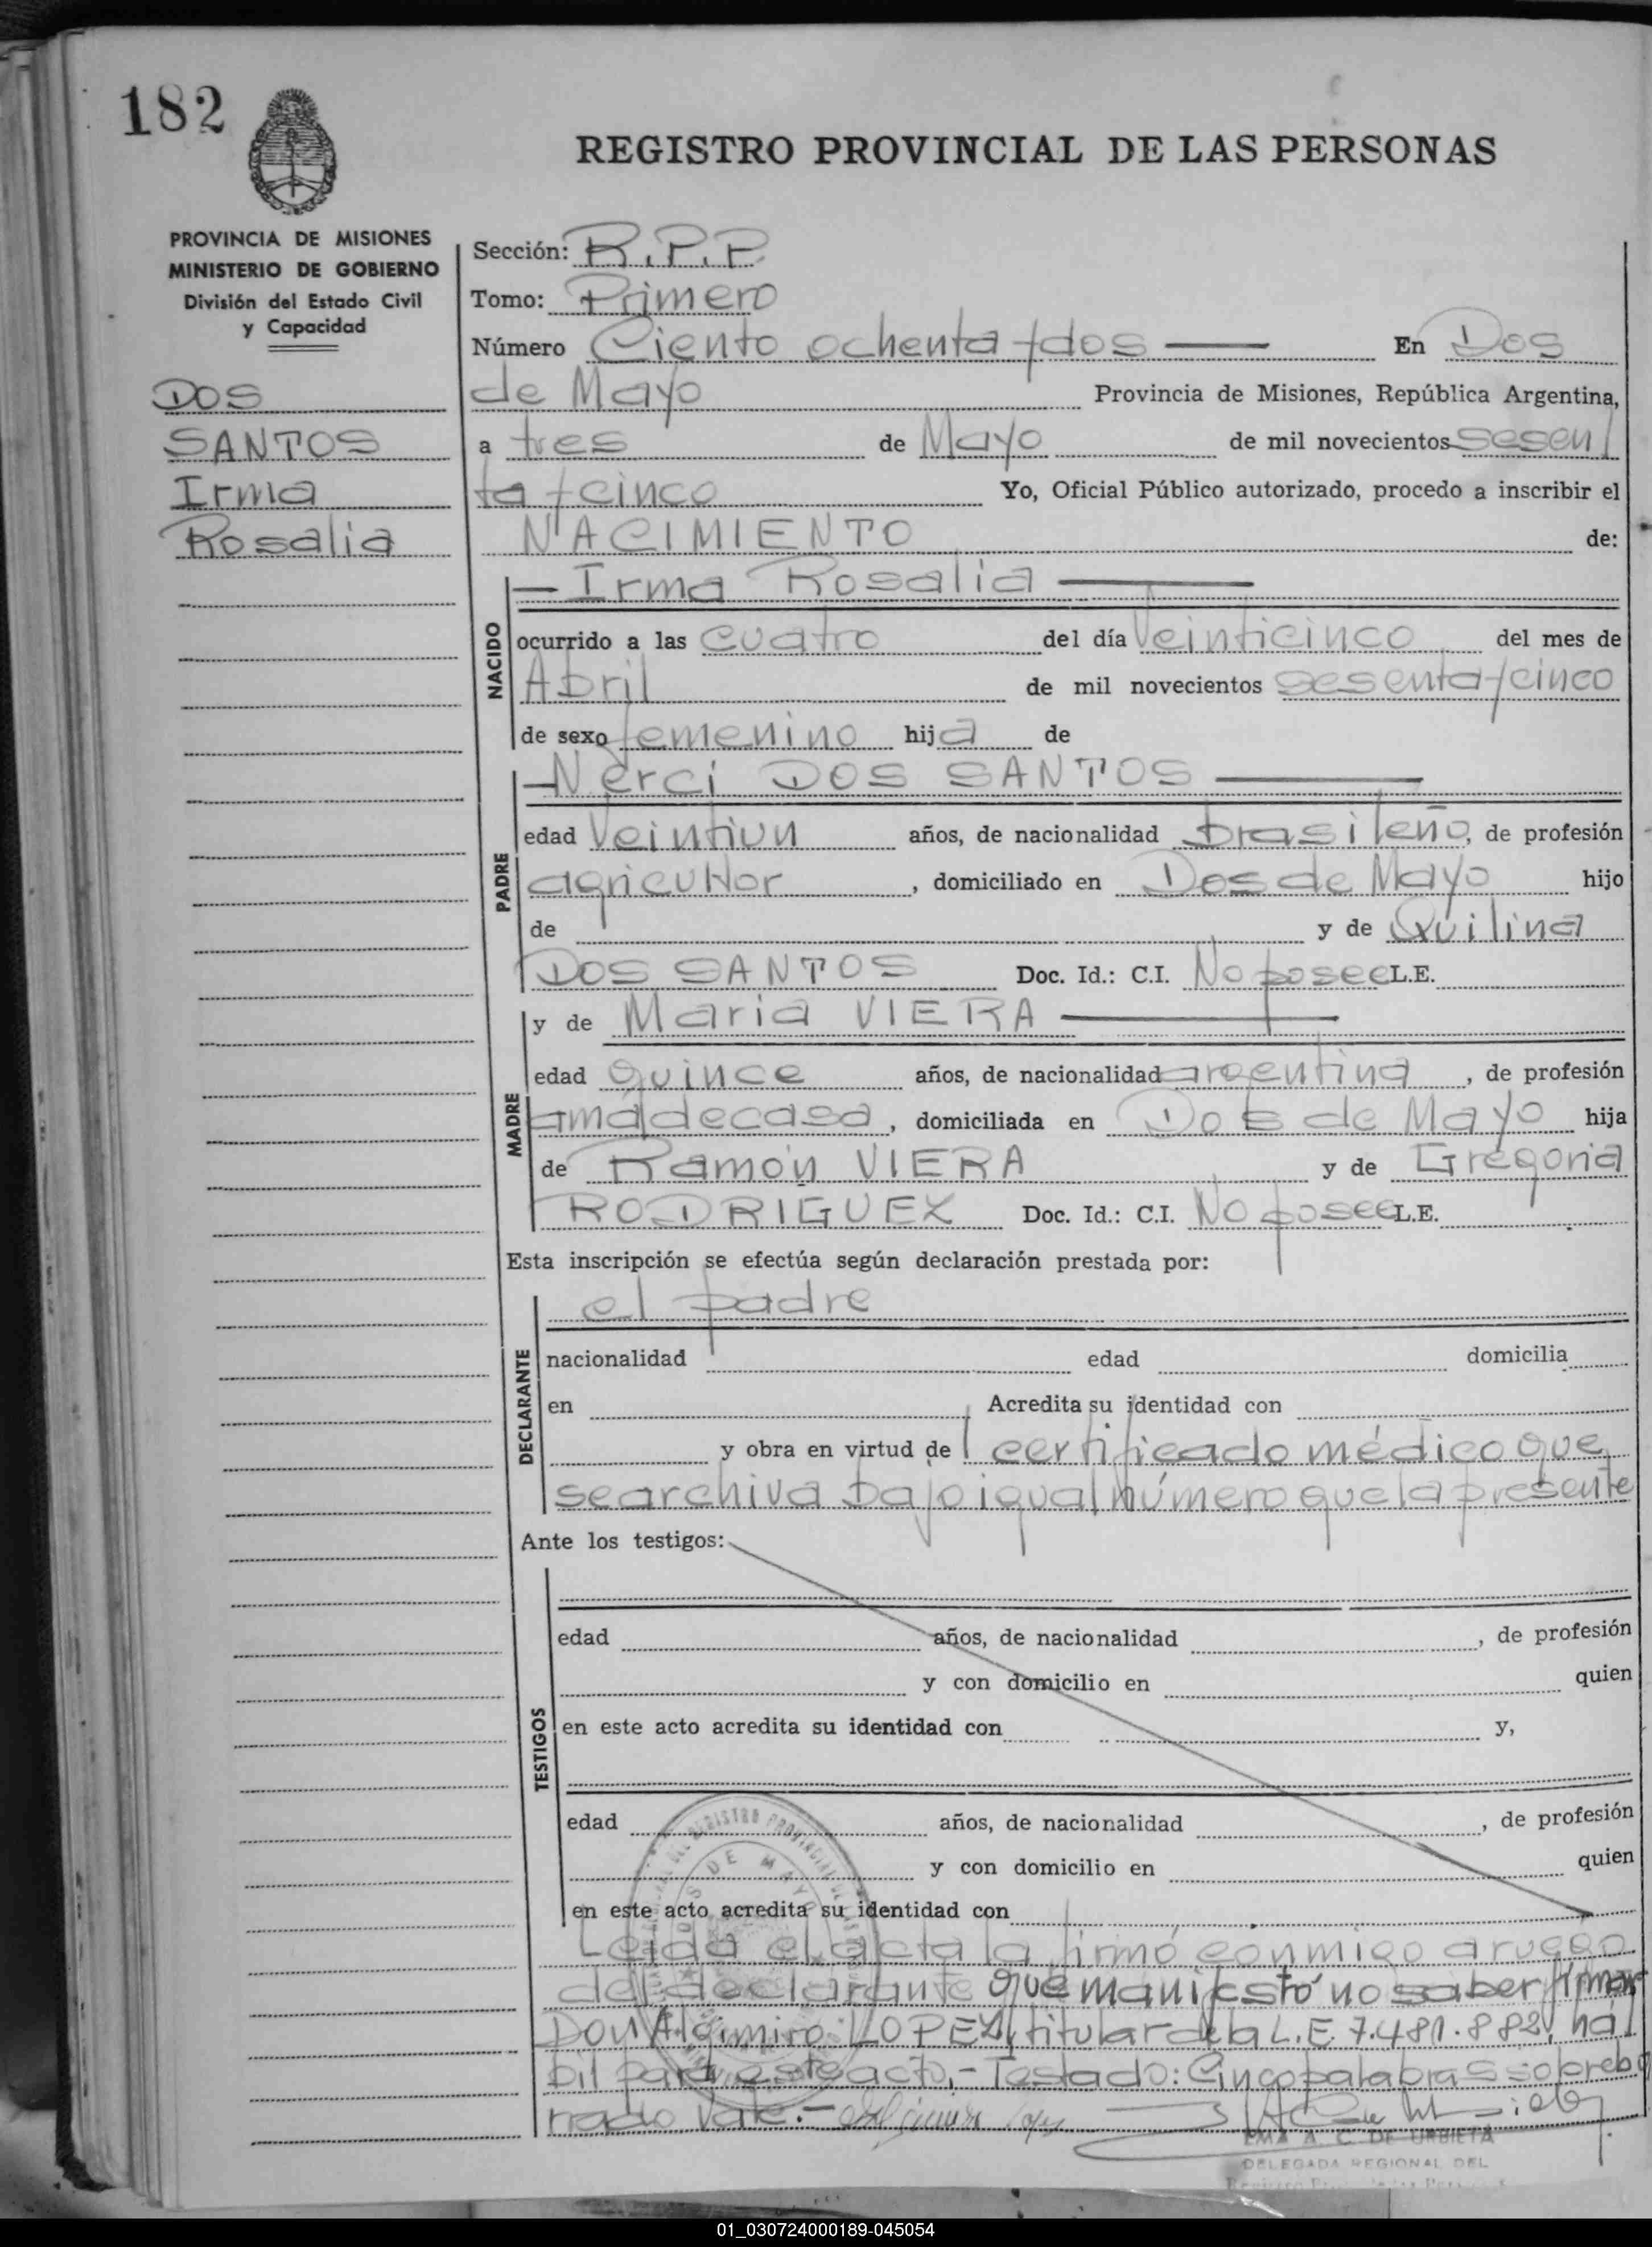 182
REGISTRO PROVINCIAL DE LAS PERSONAS
PROVINCIA DE MISIONES
MINISTERIO DE GOBIERNO
División del Estado Civil
y Capacidad
DOS
SANTOS
Irma
Rosalia
Sección: R.P.P.
Tomo: Primero
Número Ciento ochenta y dos En Dos
de Mayo Provincia de Misiones, República Argentina,
a tres de Mayo de mil novecientos sesen
ta y cinco Yo, Oficial Público autorizado, procedo a inscribir el
NACIMIENTO de:
NACIDO
— Irma Rosalia —
ocurrido a las cuatro del día Veinticinco del mes de
Abril de mil novecientos sesenta y cinco
de sexo femenino hija de
PADRE
— Nerci DOS SANTOS —
edad Veintiun años, de nacionalidad brasileño, de profesión
agricultor, domiciliado en Dos de Mayo hijo
de y de Quilina
DOS SANTOS Doc. Id.: C.I. No posee L.E.
MADRE
y de Maria VIERA —
edad quince años, de nacionalidad argentina, de profesión
ama de casa, domiciliada en Dos de Mayo hija
de Ramón VIERA y de Gregoria
RODRIGUEZ Doc. Id.: C.I. No posee L.E.
Esta inscripción se efectúa según declaración prestada por:
DECLARANTE
el padre
nacionalidad edad domicilia
en Acredita su identidad con
y obra en virtud de certificado médico que
se archiva bajo igual número que la presente
Ante los testigos:
TESTIGOS
edad años, de nacionalidad , de profesión
y con domicilio en quien
en este acto acredita su identidad con y,
edad años, de nacionalidad , de profesión
y con domicilio en quien
en este acto acredita su identidad con
Leida el acta la firmó conmigo a ruego
del declarante que manifestó no saber firmar
Don Algimiro LOPEZ, titular de la L.E 7.481.882, há
bil para este acto.- Testado: Cinco palabras sobrebo
rrado Vale.-
EMA A. C. DE URBIETA
DELEGADA REGIONAL DEL
01_030724000189-045054